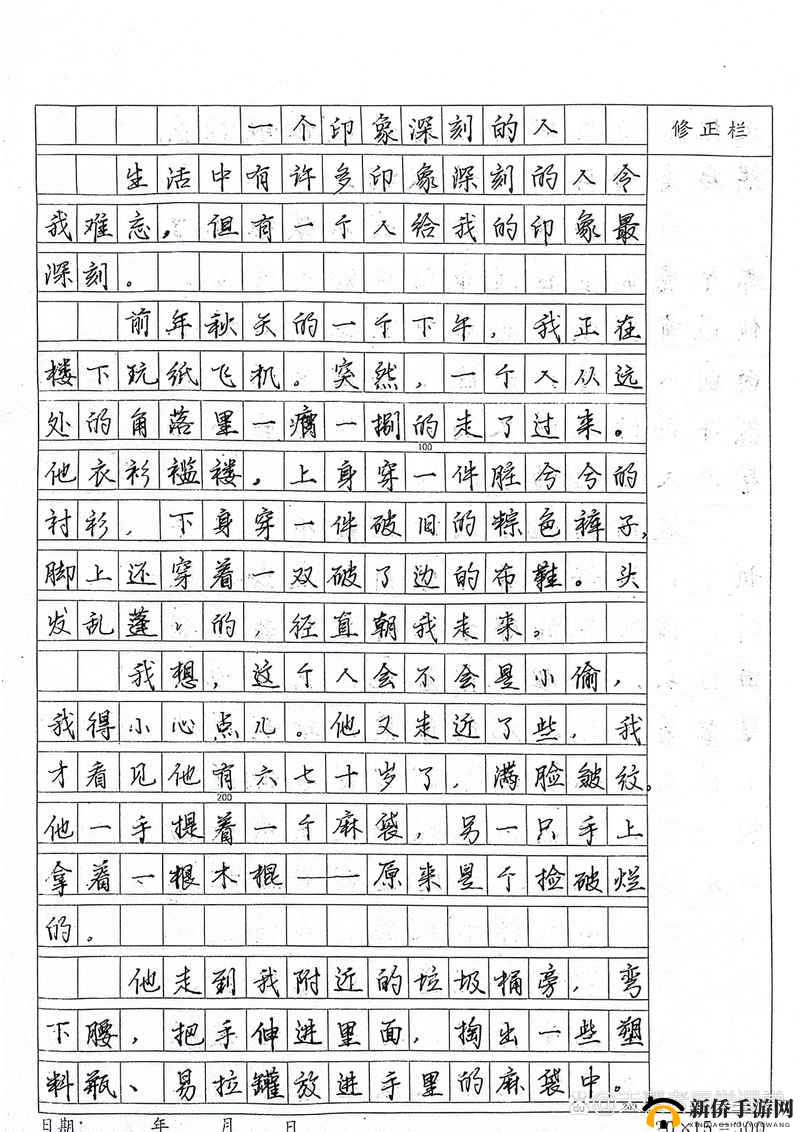 一个印象深刻的人
修正栏
生活中有许多印象深刻的人令
我难忘，但有一个人给我的印象最
深刻。
前年秋天的一个下午，我正在
楼下玩纸飞机。突然，一个人从远
处的角落里一瘸一拐的走了过来。
100
他衣衫褴褛。上身穿一件脏兮兮的
衬衫，下身穿一件破旧的棕色裤子，
脚上还穿着一双破了边的布鞋。头
发乱蓬、的，径直朝我走来。
我想，这个人会不会是小偷，
我得小心点儿。他又走近了些，我
才看见他有六七十岁了，满脸皱纹。
200
他一手提着一个麻袋，另一只手上
拿着一根木棍——原来是个捡破烂
的。
他走到我附近的垃圾桶旁，弯
下腰，把手伸进里面，掏出一些塑
料瓶、易拉罐放进手里的麻袋中。
日期： 年 月 日
20×15=300
新侨手游网
XINQIAOSHOUYOUWANG